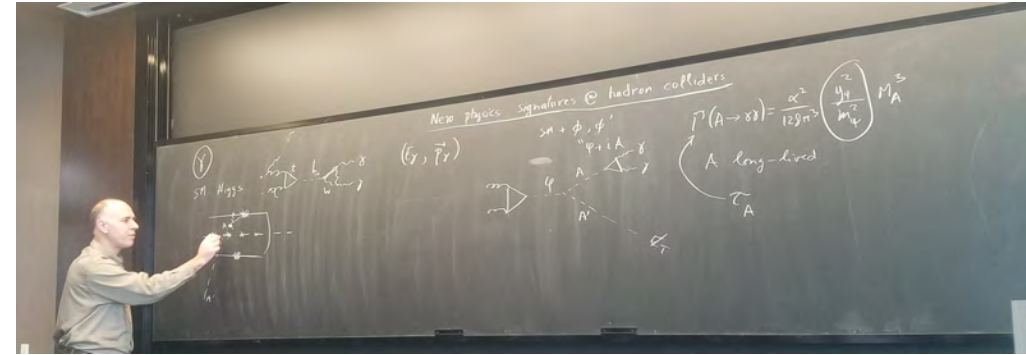 New physics signatures @ hadron colliders
γ
SM Higgs
t
h
γ
γ
W
(E_γ, p⃗_γ)
SM + ϕ, ϕ'
"φ + i A
φ
A
γ
γ
A'
E̸_T
Γ(A→γγ) = α²/128π³ y_ψ²/m_ψ² M_A³
A long-lived
τ_A
A'